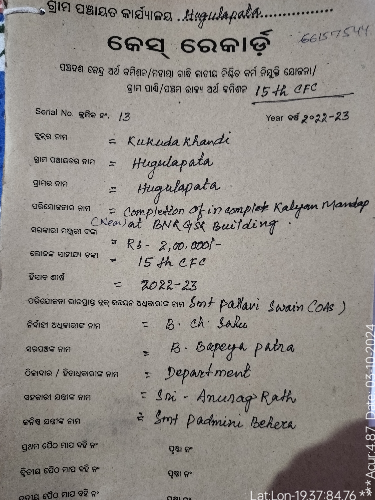 ଗ୍ରାମ ପଞ୍ଚାୟତ କାର୍ଯ୍ୟାଳୟ...Hugulapata...
କେସ୍ ରେକର୍ଡ଼
66157544
ପଞ୍ଚଦଶ କେନ୍ଦ୍ର ଅର୍ଥ କମିଶନ/ମହାତ୍ମା ଗାନ୍ଧି ଜାତୀୟ ନିଶ୍ଚିତ କର୍ମ ନିଯୁକ୍ତି ଯୋଜନା/
ଗ୍ରାମ ପାଣ୍ଠି/ପଞ୍ଚମ ରାଜ୍ୟ ଅର୍ଥ କମିଶନ 15 th CFC
Serial No. କ୍ରମିକ ନଂ. 13 Year ବର୍ଷ 2022-23
ବ୍ଲକ୍‌ର ନାମ = Kukuda Khandi
ଗ୍ରାମ ପଞ୍ଚାୟତର ନାମ = Hugulapata
ଗ୍ରାମର ନାମ = Hugulapata
ପରିଯୋଜନାର ନାମ = Completion of incomplet Kalyan Mandap
(New) at BNRGSK Building.
ସରକାରୀ ମଞ୍ଜୁରୀ ଟଙ୍କା = Rs- 2,00,000/-
ଯୋଜନା = 15 th CFC
ହିସାବ ଶୀର୍ଷ = 2022-23
ପରିଯୋଜନା ଭାରପ୍ରାପ୍ତ ବ୍ଲକ୍ ଉନ୍ନୟନ ଅଧିକାରୀଙ୍କ ନାମ Smt Pallavi Swain (OAS)
ନିର୍ବାହୀ ଅଧିକାରୀଙ୍କ ନାମ = B. Ch. Sahu
ସରପଞ୍ଚଙ୍କ ନାମ = B. Bapeya Patra
ଠିକାଦାର / ହିତାଧିକାରୀଙ୍କ ନାମ = Department
ସହକାରୀ ଯନ୍ତ୍ରୀଙ୍କ ନାମ = Sri - Anurag Rath
କନିଷ୍ଠ ଯନ୍ତ୍ରୀଙ୍କ ନାମ = Smt Padmini Behera
ପ୍ରଥମ ପୈଠ ମାପ ବହି ନଂ ପୃଷ୍ଠା ନଂ
ଦ୍ୱିତୀୟ ପୈଠ ମାପ ବହି ନଂ ପୃଷ୍ଠା ନଂ
ତୃତୀୟ ପୈଠ ମାପ ବହି ନଂ ପୃଷ୍ଠା ନଂ
Lat:Lon-19.37:84.76
**Acur:4.87, Date:03.10.2024